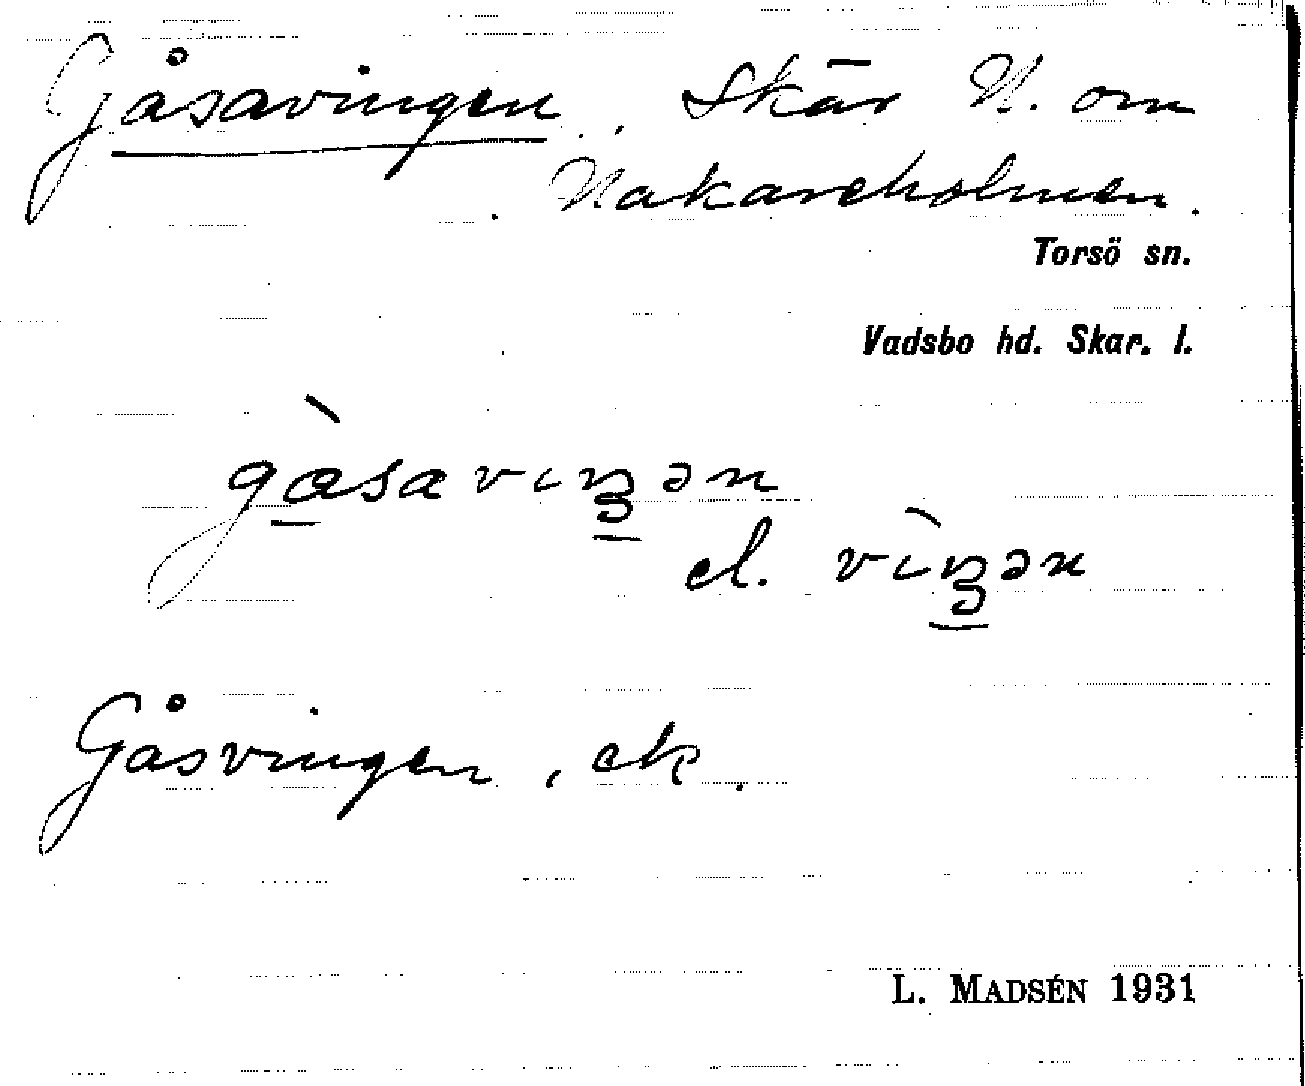 Gåsavingen, Skär N. om
Nakareholmen.
Torsö sn.
Vadsbo hd. Skar. l.
gàsaviŋən
el. vìŋən
Gåsvingen, ek.
L. MADSÉN 1931